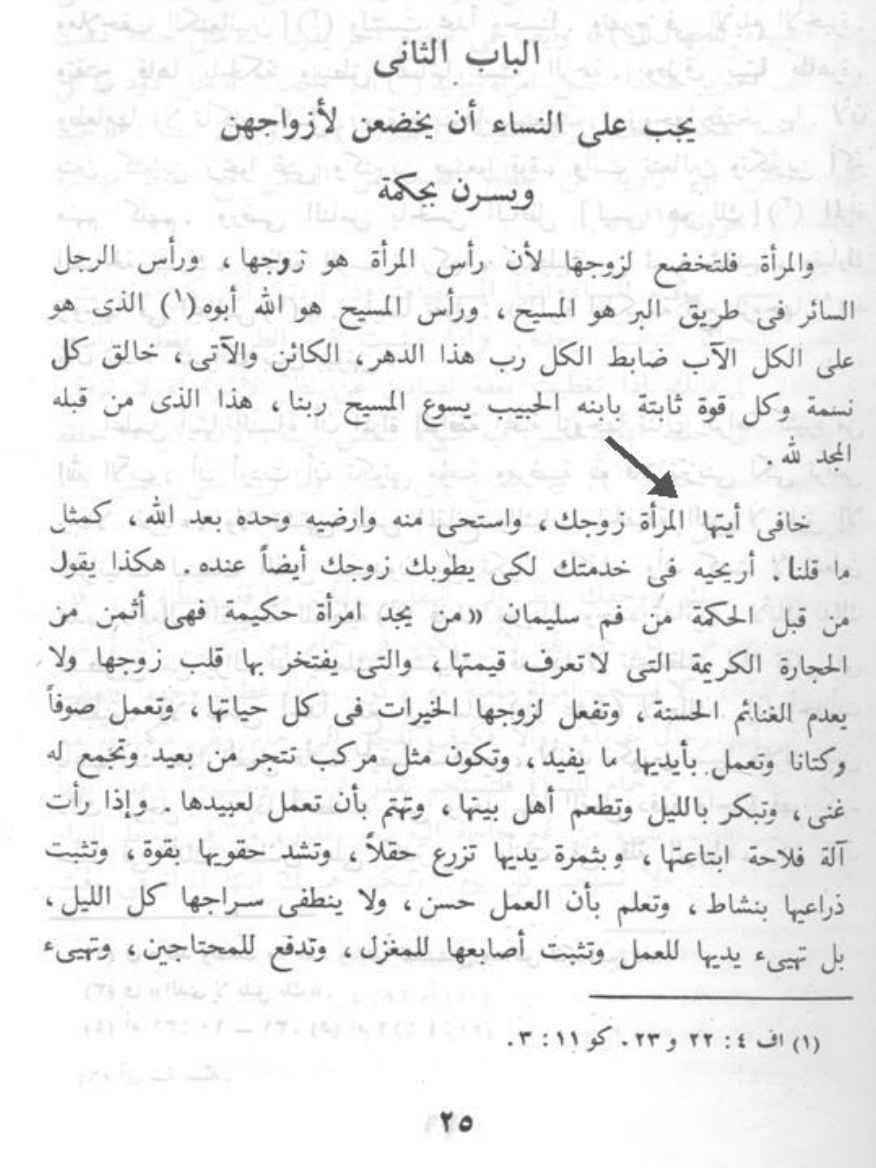 الباب الثانى
يجب على النساء أن يخضعن لأزواجهن
ويسرن بحكمة
والمرأة فلتخضع لزوجها لأن رأس المرأة هو زوجها ، ورأس الرجل
السائر فى طريق البر هو المسيح ، ورأس المسيح هو الله أبوه (١) الذى هو
على الكل الآب ضابط الكل رب هذا الدهر ، الكائن والآتى ، خالق كل
نسمة وكل قوة ثابتة بابنه الحبيب يسوع المسيح ربنا ، هذا الذى من قبله
المجد لله .
خافى أيتها المرأة زوجك ، واستحى منه وارضيه وحده بعد الله ، كمثل
ما قلنا . أريحيه فى خدمتك لكى يطوبك زوجك أيضاً عنده . هكذا يقول
من قبل الحكمة من فم سليمان «من يجد امرأة حكيمة فهى أثمن من
الحجارة الكريمة التى لا تعرف قيمتها ، والتى يفتخر بها قلب زوجها ولا
يعدم الغنائم الحسنة ، وتفعل لزوجها الخيرات فى كل حياتها ، وتعمل صوفاً
وكتانا وتعمل بأيديها ما يفيد ، وتكون مثل مركب تتجر من بعيد وتجمع له
غنى ، وتبكر بالليل وتطعم أهل بيتها ، وتهتم بأن تعمل لعبيدها . وإذا رأت
آلة فلاحة ابتاعتها ، وبثمرة يديها تزرع حقلاً ، وتشد حقويها بقوة ، وتثبت
ذراعيها بنشاط ، وتعلم بأن العمل حسن ، ولا ينطفى سراجها كل الليل ،
بل تهيىء يديها للعمل وتثبت أصابعها للمغزل ، وتدفع للمحتاجين ، وتهيىء
(١) اف ٤ : ٢٢ و ٢٣ . كو ١١ : ٣ .
٢٥